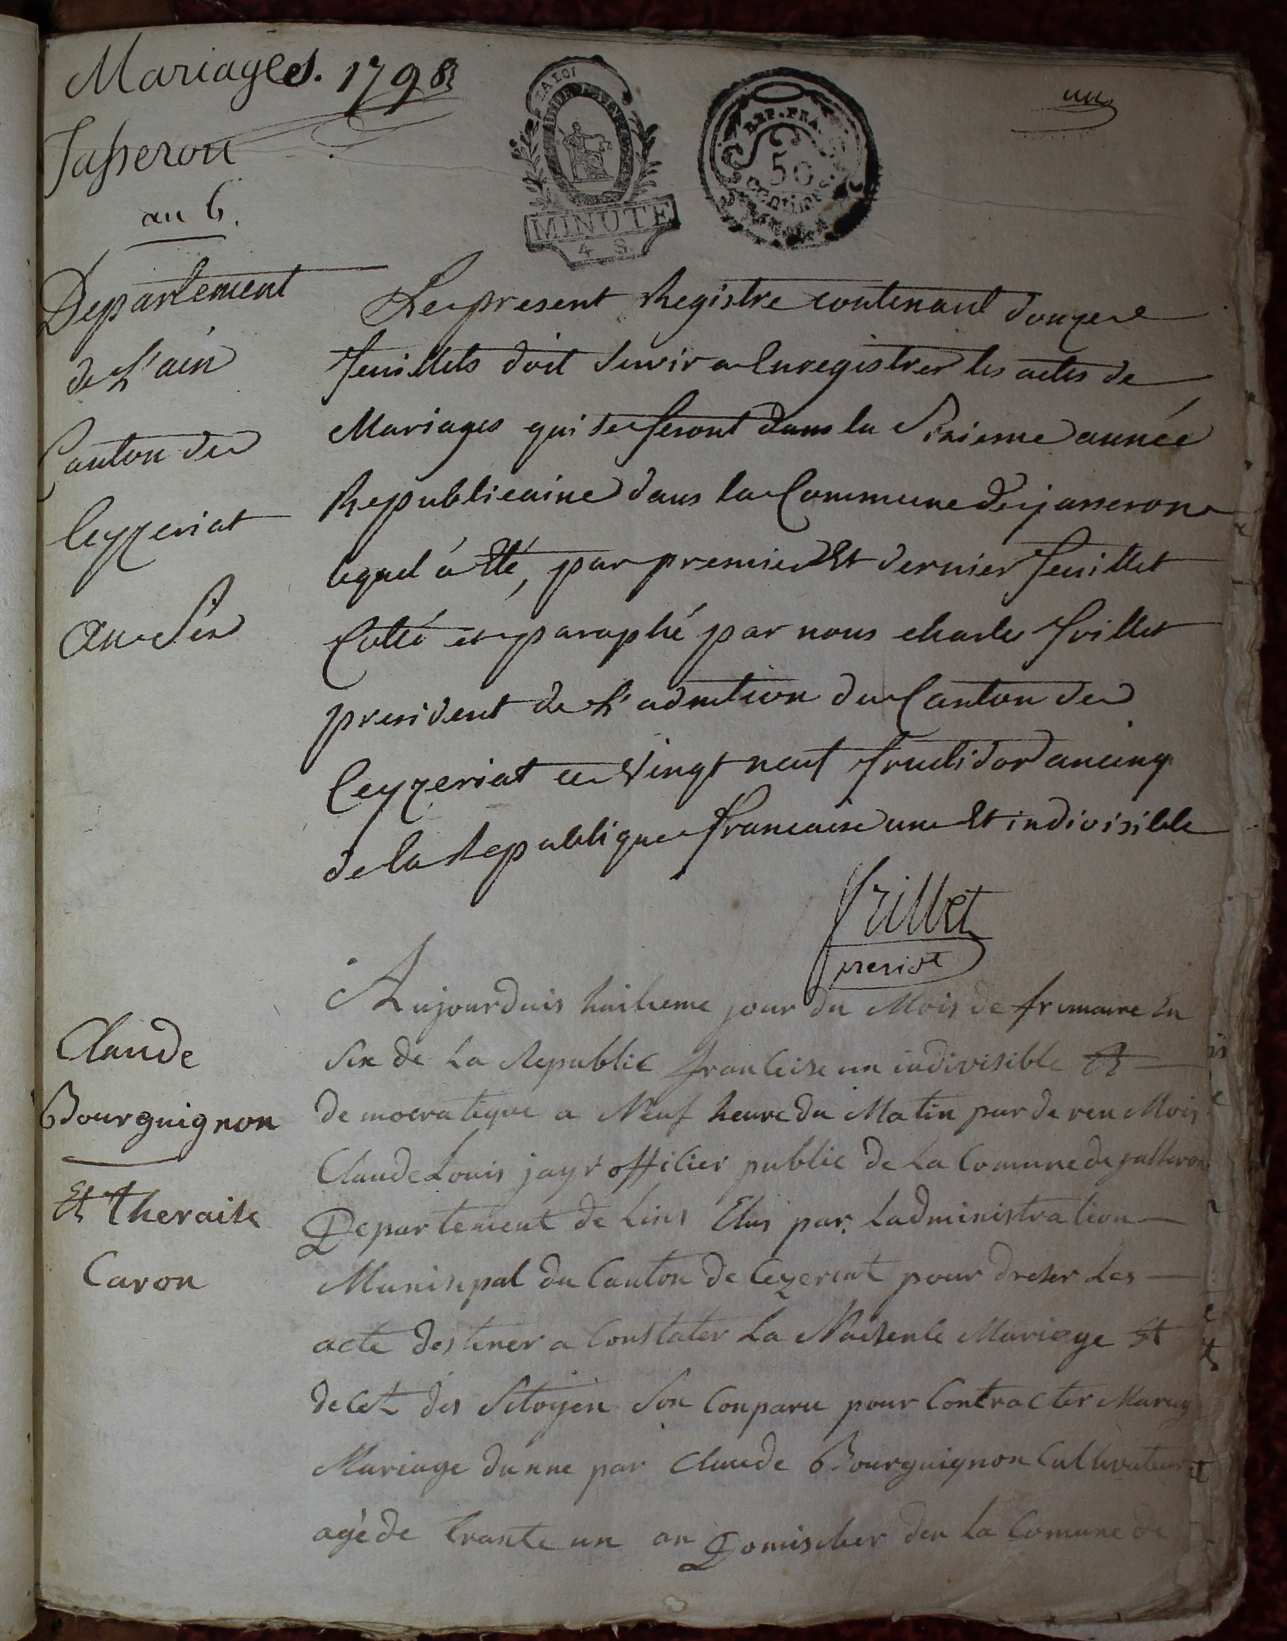 Mariages. 1798
un
Jasseron
an 6.
LA LOI
MINUTE
4 S
REP. FRA.
50
centimes
Departement
de L'ain
Canton de
Ceyzeriat
an Six
Le present Registre contenant douze
feuillets doit servir a Enregistrer les actes de
Mariages qui se feront dans la Sixieme année
Republicaine dans la Commune de jasseron
lequel á Eté, par premier Et dernier feuillet
Cotté et paraphé par nous charles frillet
president de L'admtion du Canton de
Ceyzeriat ce Vingt neuf fructidor an cinq
de la Republique francaise une Et indivisible
frillet
presidt
Claude
Bourguignon
Et theraise
Caron
Aujourduis huitieme jour du Mois de frimaire en
Six de La Republic franceise un indivisible Et
democratique a Neuf heure du Matin par de ven Mois
Claude Louis jayr officier public de La Comune de jasseron
Departement de Lins Elus par Ladministration
Munisipal du Canton de Cezeriat pour dreser Les
acte destiner a Constater La Naisence Mariage Et
decet des Sitoyen Son Conparu pour Contracter Mariag
Mariage dunne par Claude Bourguignon Cultivateur
agé de trante un an Domisclier den La Comune de